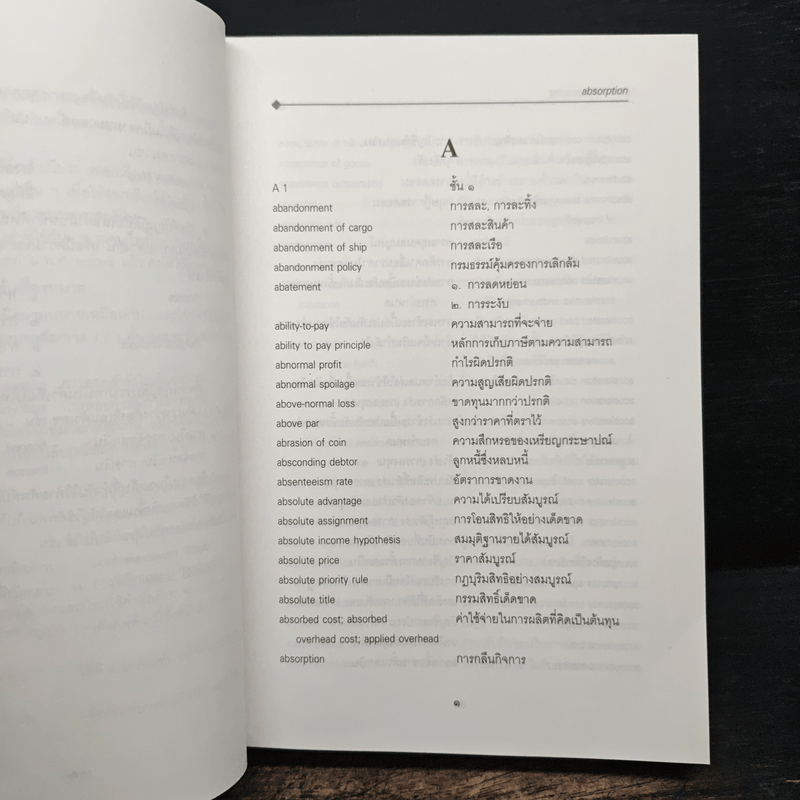 absorption
A
A 1 ชั้น ๑
abandonment การสละ, การละทิ้ง
abandonment of cargo การสละสินค้า
abandonment of ship การสละเรือ
abandonment policy กรมธรรม์คุ้มครองการเลิกล้ม
abatement ๑. การลดหย่อน
๒. การระงับ
ability-to-pay ความสามารถที่จะจ่าย
ability to pay principle หลักการเก็บภาษีตามความสามารถ
abnormal profit กำไรผิดปรกติ
abnormal spoilage ความสูญเสียผิดปรกติ
above-normal loss ขาดทุนมากกว่าปรกติ
above par สูงกว่าราคาที่ตราไว้
abrasion of coin ความสึกหรอของเหรียญกระษาปณ์
absconding debtor ลูกหนี้ซึ่งหลบหนี้
absenteeism rate อัตราการขาดงาน
absolute advantage ความได้เปรียบสัมบูรณ์
absolute assignment การโอนสิทธิให้อย่างเด็ดขาด
absolute income hypothesis สมมุติฐานรายได้สัมบูรณ์
absolute price ราคาสัมบูรณ์
absolute priority rule กฎบุริมสิทธิอย่างสมบูรณ์
absolute title กรรมสิทธิ์เด็ดขาด
absorbed cost; absorbed ค่าใช้จ่ายในการผลิตที่คิดเป็นต้นทุน
overhead cost; applied overhead
absorption การกลืนกิจการ
๑